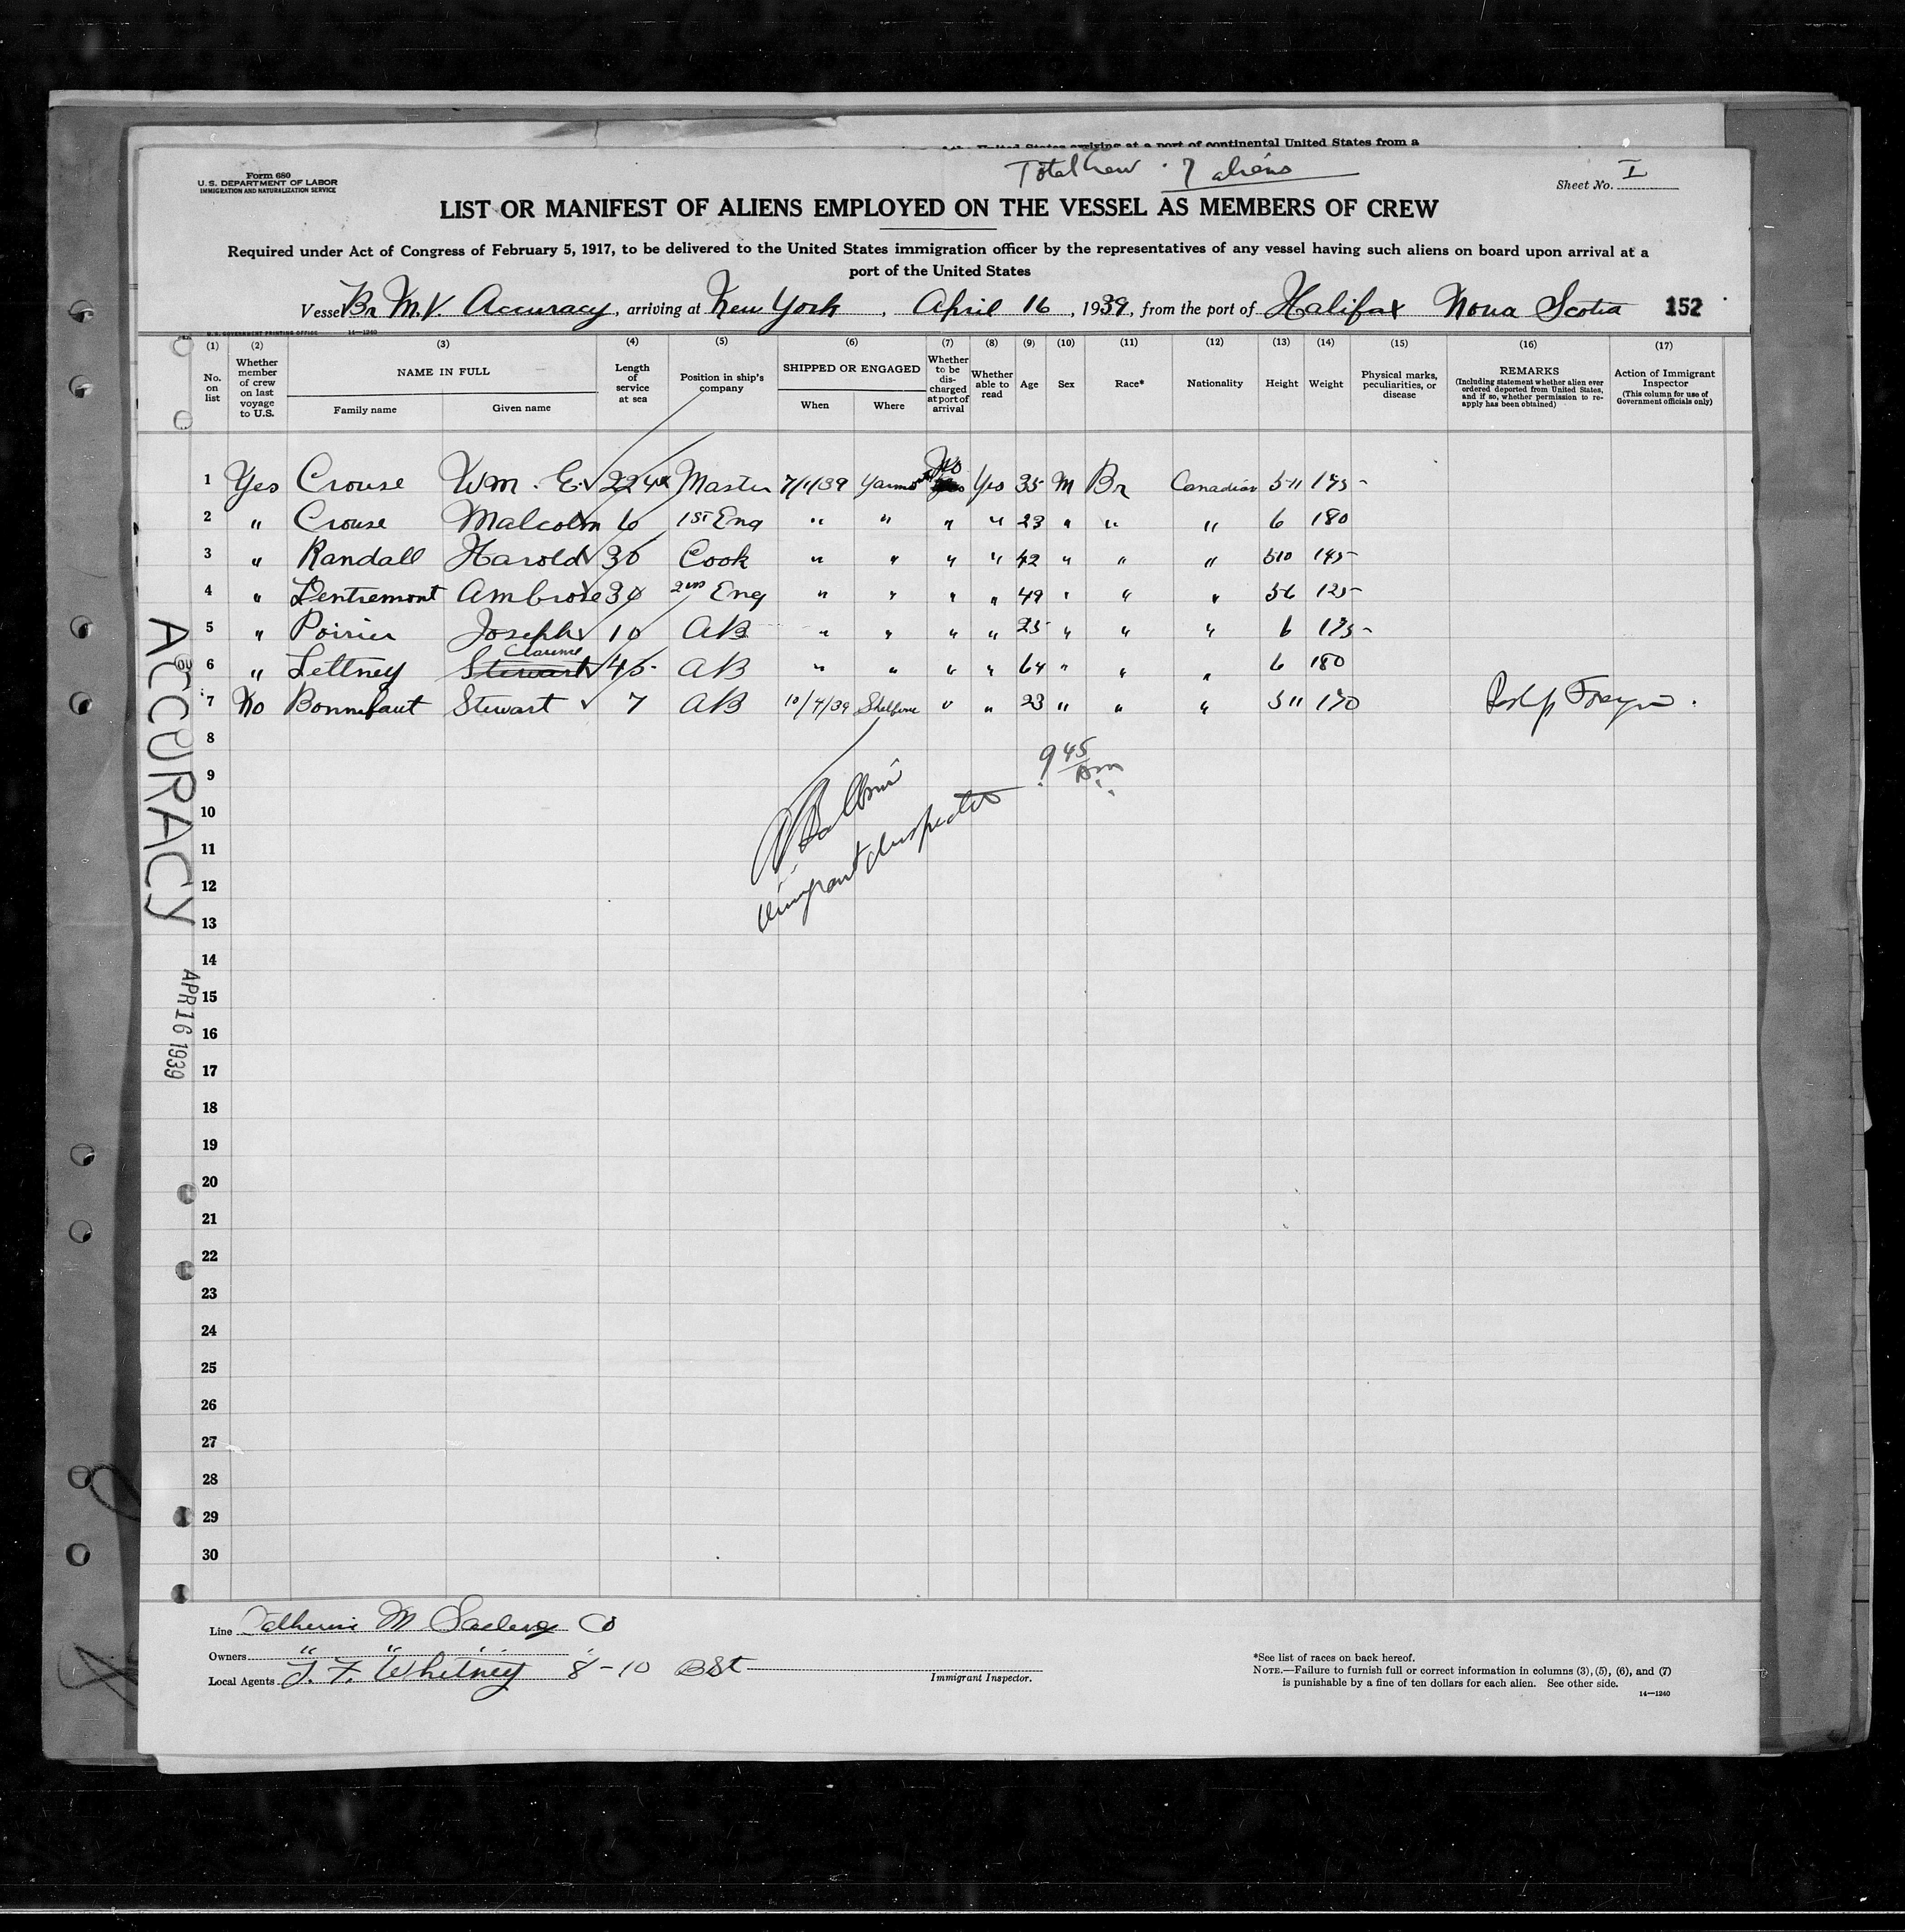 of the United States arriving at a port of continental United States from a
Form 680
U. S. DEPARTMENT OF LABOR
IMMIGRATION AND NATURALIZATION SERVICE
Total Crew 7 aliens
Sheet No. I
LIST OR MANIFEST OF ALIENS EMPLOYED ON THE VESSEL AS MEMBERS OF CREW
Required under Act of Congress of February 5, 1917, to be delivered to the United States immigration officer by the representatives of any vessel having such aliens on board upon arrival at a
port of the United States
Vessel Br M.V. Accuracy, arriving at New York, April 16, 1939, from the port of Halifax Nova Scotia 152
U. S. GOVERNMENT PRINTING OFFICE 14—1240
(1) (2) (3) (4) (5) (6) (7) (8) (9) (10) (11) (12) (13) (14) (15) (16) (17)
No. on list
Whether member of crew on last voyage to U.S.
NAME IN FULL
Family name
Given name
Length of service at sea
Position in ship's company
SHIPPED OR ENGAGED
When
Where
Whether to be discharged at port of arrival
Whether able to read
Age
Sex
Race*
Nationality
Height
Weight
Physical marks, peculiarities, or disease
REMARKS
(Including statement whether alien ever ordered deported from United States, and if so, whether permission to reapply has been obtained)
Action of Immigrant Inspector
(This column for use of Government officials only)
1 Yes Crouse Wm. E. 22 Master 7/1/39 Yarmo No Yes 35 M Br Canadian 5-11 175
2 " Crouse Malcolm 6 1st Eng " " " " 23 " " " 6 180
3 " Randall Harold 30 Cook " " " " 42 " " " 510 145
4 " Dentremont Ambrose 30 2nd Eng " " " " 49 " " " 56 125
5 " Poirier Joseph 10 AB " " " " 25 " " " 6 175
6 " Lettney Stewart Clarence 45 AB " " " " 64 " " " 6 180
7 No Bonnefaut Stewart 7 AB 10/4/39 Shelburne " " 23 " " " 5 11 170
8
9
10
11
12
13
14
15
16
17
18
19
20
21
22
23
24
25
26
27
28
29
30
9 45 Am
Immigrant Inspector
ACCURACY
APR 16 1939
Line Catherine M Co
Owners " "
Local Agents J. F. Whitney 8-10 B St
Immigrant Inspector.
*See list of races on back hereof.
NOTE.—Failure to furnish full or correct information in columns (3), (5), (6), and (7)
is punishable by a fine of ten dollars for each alien. See other side.
14—1240